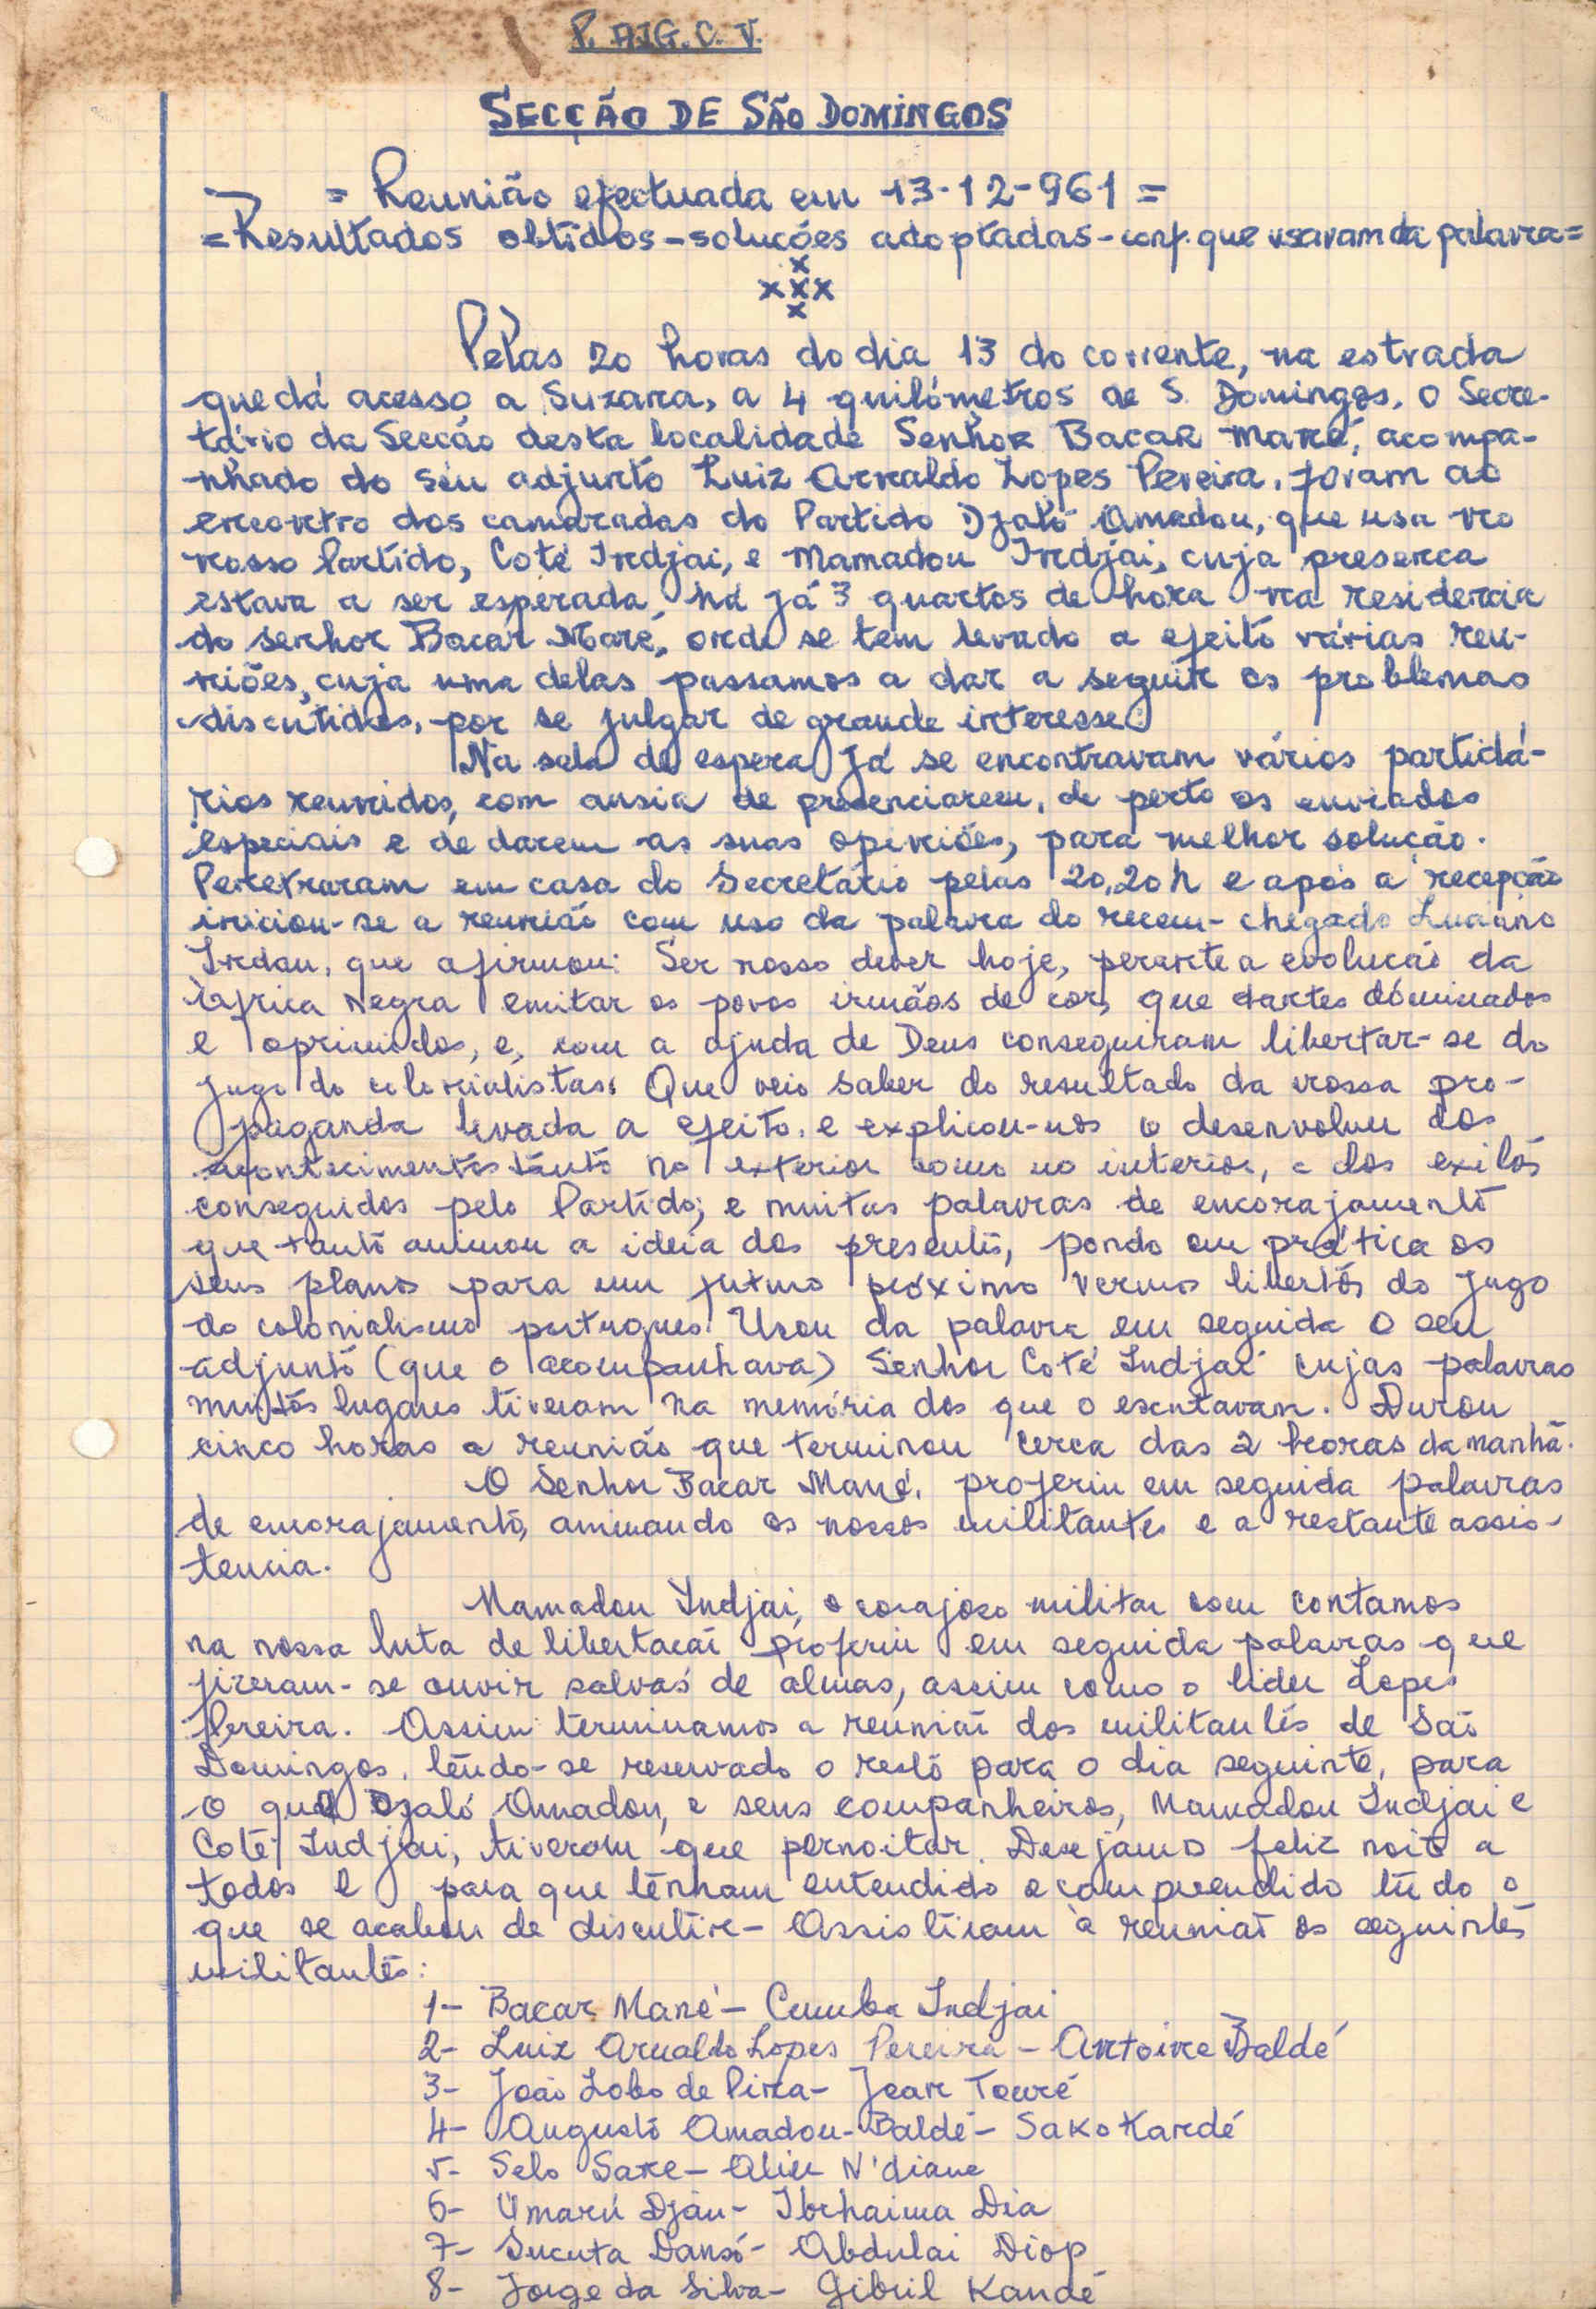 P. AIG. C. V.
SECÇÃO DE SÃO DOMINGOS
= Reunião efectuada em 13-12-961 =
=Resultados obtidos-soluções adoptadas-conf. que usavam da palavra=
x
xxx
x
Pelas 20 horas do dia 13 do corrente, na estrada
que dá acesso a Suzana, a 4 quilómetros de S. Domingos, o Secre-
tário da Secção desta localidade Senhor Bacar Mané, acompa-
nhado do seu adjunto Luiz Arnaldo Lopes Pereira, foram ao
encontro dos camaradas do Partido Djaló Amadou, que usa no
nosso Partido, Coté Indjai, e Mamadou Indjai, cuja presença
estava a ser esperada, há já 3 quartos de hora na residencia
do senhor Bacar Mané, onde se tem levado a efeito várias reu-
niões, cuja uma delas passamos a dar a seguir os problemas
discutidos, por se julgar de grande interesse:
Na sala de espera já se encontravam vários partidá-
rios reunidos, com ansia de presenciarem, de perto os enviados
especiais e de darem as suas opiniões, para melhor solução.
Penetraram em casa do Secretário pelas 20,20h e após a recepção
iniciou-se a reunião com uso da palavra do recem-chegado Luciano
Indau, que afirmou: Ser nosso dever hoje, perante a evolução da
Africa Negra emitar os povos irmãos de cor, que dantes dominados
e oprimidos, e, com a ajuda de Deus conseguiram libertar-se do
jugo do colonialistas. Que veio saber do resultado da nossa pro-
paganda levada a efeito, e explicou-nos o desenvolveu dos
acontecimentos tanto no exterior como no interior, e dos exitos
conseguidos pelo Partido; e muitas palavras de encorajamento
que tanto animou a ideia dos presentes, pondo em prática os
seus planos para um futuro próximo vermos libertos do jugo
do colonialismo portugues. Usou da palavra em seguida o seu
adjunto (que o acompanhava) Senhor Coté Indjai cujas palavras
muitos lugares tiveram na memória dos que o escutavam. Durou
cinco horas a reunião que terminou cerca das 2 horas da manhã.
O Senhor Bacar Mané, proferiu em seguida palavras
de encorajamento, animando os nossos militantes e a restante assis-
tencia.
Mamadou Indjai, o corajoso militar com contamos
na nossa luta de libertação proferiu em seguida palavras que
fizeram-se ouvir salvas de almas, assim como o lider Lopes
Pereira. Assim terminamos a reunião dos militantes de São
Domingos, tendo-se reservado o resto para o dia seguinte, para
o qual Djaló Amadou, e seus companheiros, Mamadou Indjai e
Coté Indjai, tiveram que pernoitar. Desejamos feliz noite a
todos e para que tenham entendido e compreendido tudo o
que se acabou de discutir- Assistiram à reunião os seguintes
militantes:
1- Bacar Mané- Cumba Indjai
2- Luiz Arnaldo Lopes Pereira- Antoine Baldé
3- João Lobo de Pina- Jean Touré
4- Augusto Amadou-Baldé- Sako Kandé
5- Selo Sane- Aliu N'diane
6- Umarú Djau- Ibrhaima Dia
7- Sucuta Dansó- Abdulai Diop
8- Jorge da Silva- Gibril Kandé